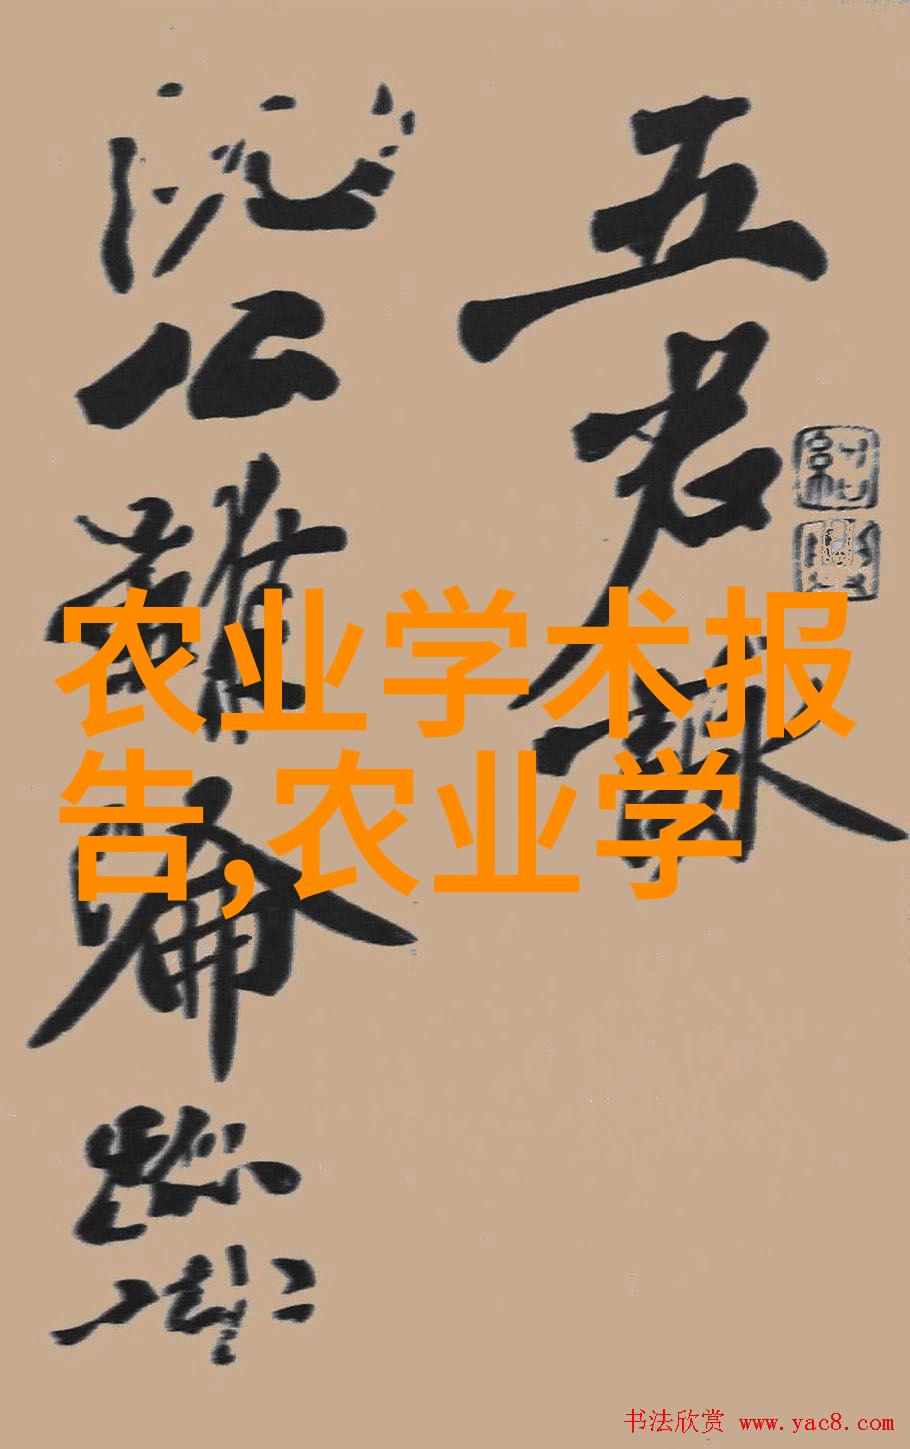 五君詠
阮公雖淪跡
农业学术报
告,农业学
书法欣赏 www.yac8.com